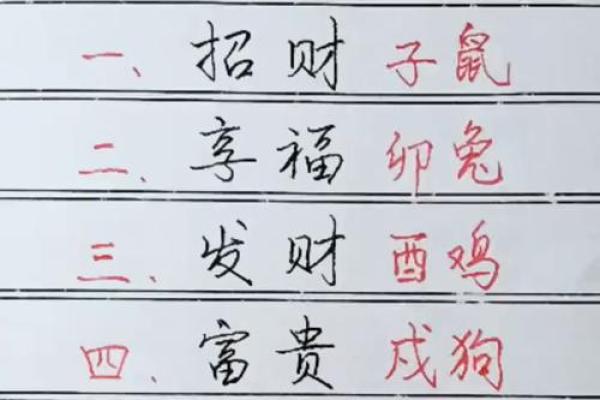 一、招财 子鼠
二、享福 卯兔
三、发财 酉鸡
四、富贵 戌狗